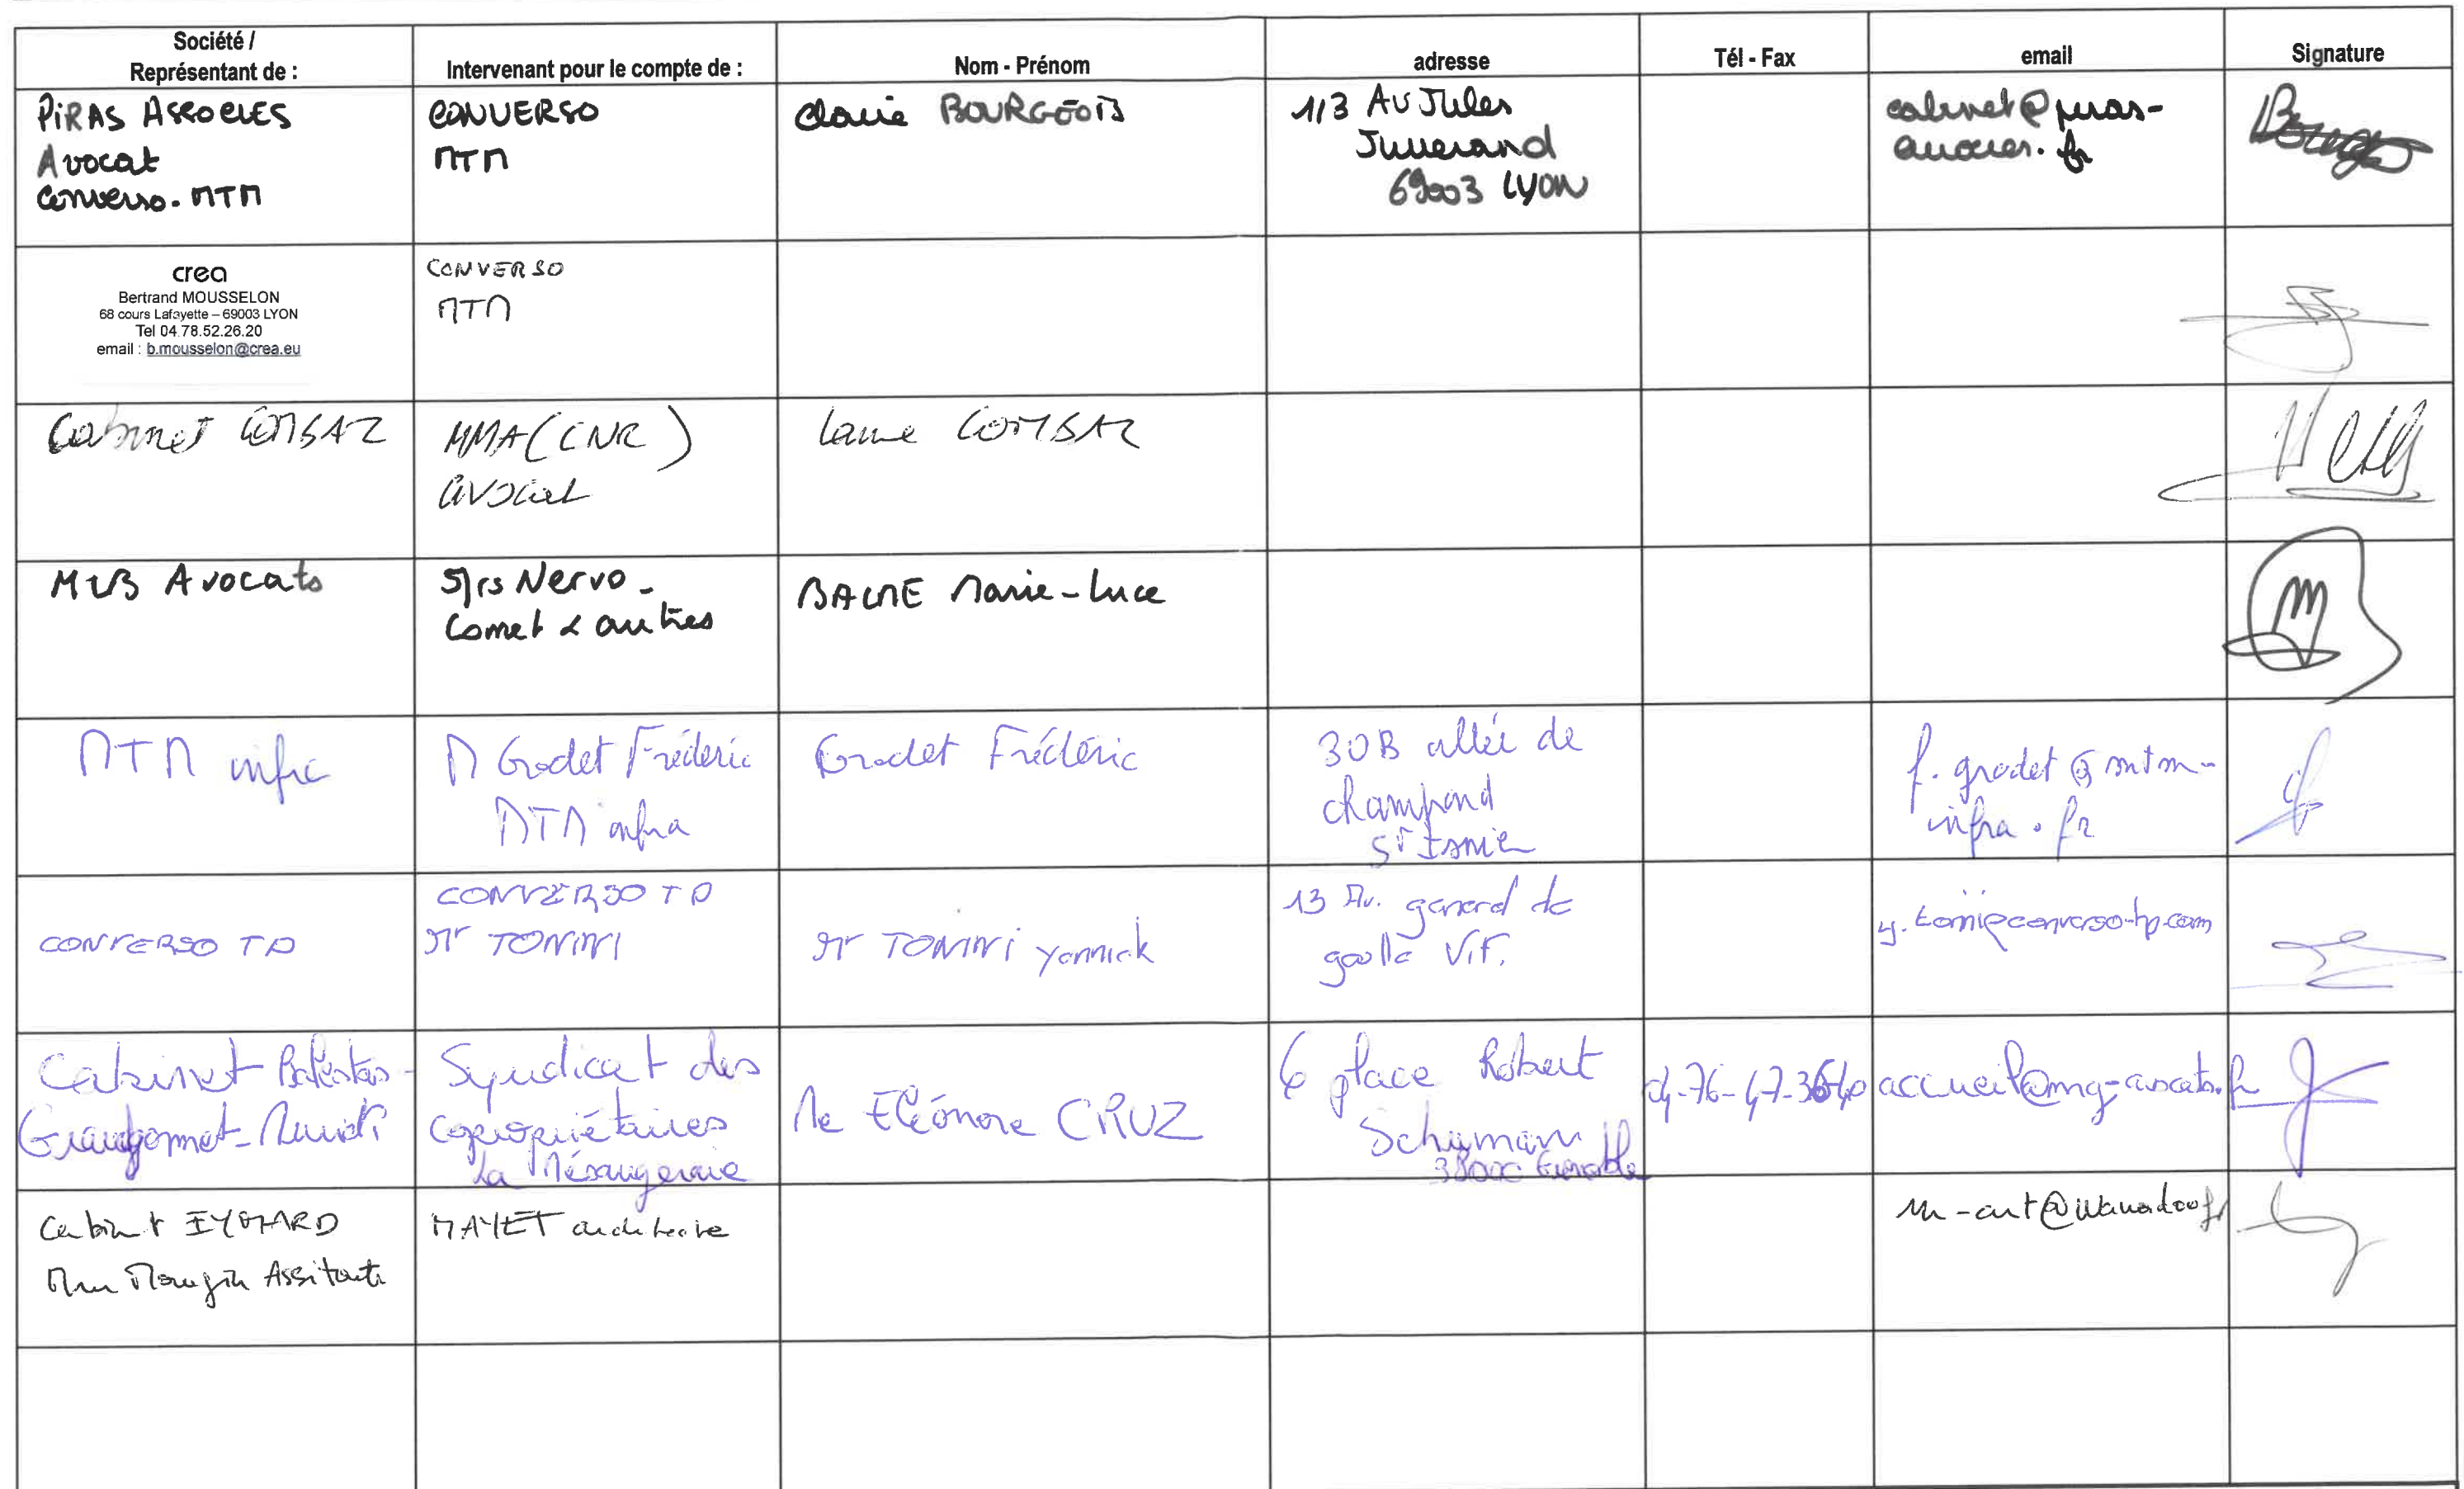 Société /
Représentant de :
Intervenant pour le compte de :
Nom - Prénom
adresse
Tél - Fax
email
Signature
PiRAS ASSOCIES
Avocat
Converso. MTM
CONVERSO
MTM
Claire BOURGEOIS
1/3 Av Jules
Jusserand
69003 LYON
cabinet@piras-
associes.fr
crea
Bertrand MOUSSELON
68 cours Lafayette – 69003 LYON
Tel 04.78.52.26.20
email : b.mousselon@crea.eu
CONVERSO
MTM
Cabinet COMBAZ
MMA (CNR)
avocat
COMBAZ
MLB Avocats
Nervo -
Comet & autres
BALME Marie-Luce
MTM infra
M Grodet Fréderic
MTM infra
Grodet Fréderic
30B allée de
champrond
St Ismier
f.grodet@mtm-
infra.fr
CONVERSO TP
CONVERSO TP
Mr TONINI
Mr TONINI Yannick
13 Av. general de
gaulle Vif.
Cabinet Balestas -
Grandgonnet - Muridi
Syndicat des
copropriétaires
la Mésangeraie
Me Eléonore CRUZ
6 place Robert
Schuman
38000 Grenoble
accueil@mg-avocats.fr
Cabinet EYMARD
Assitante
MAYET architecte
m-art@wanadoo.fr